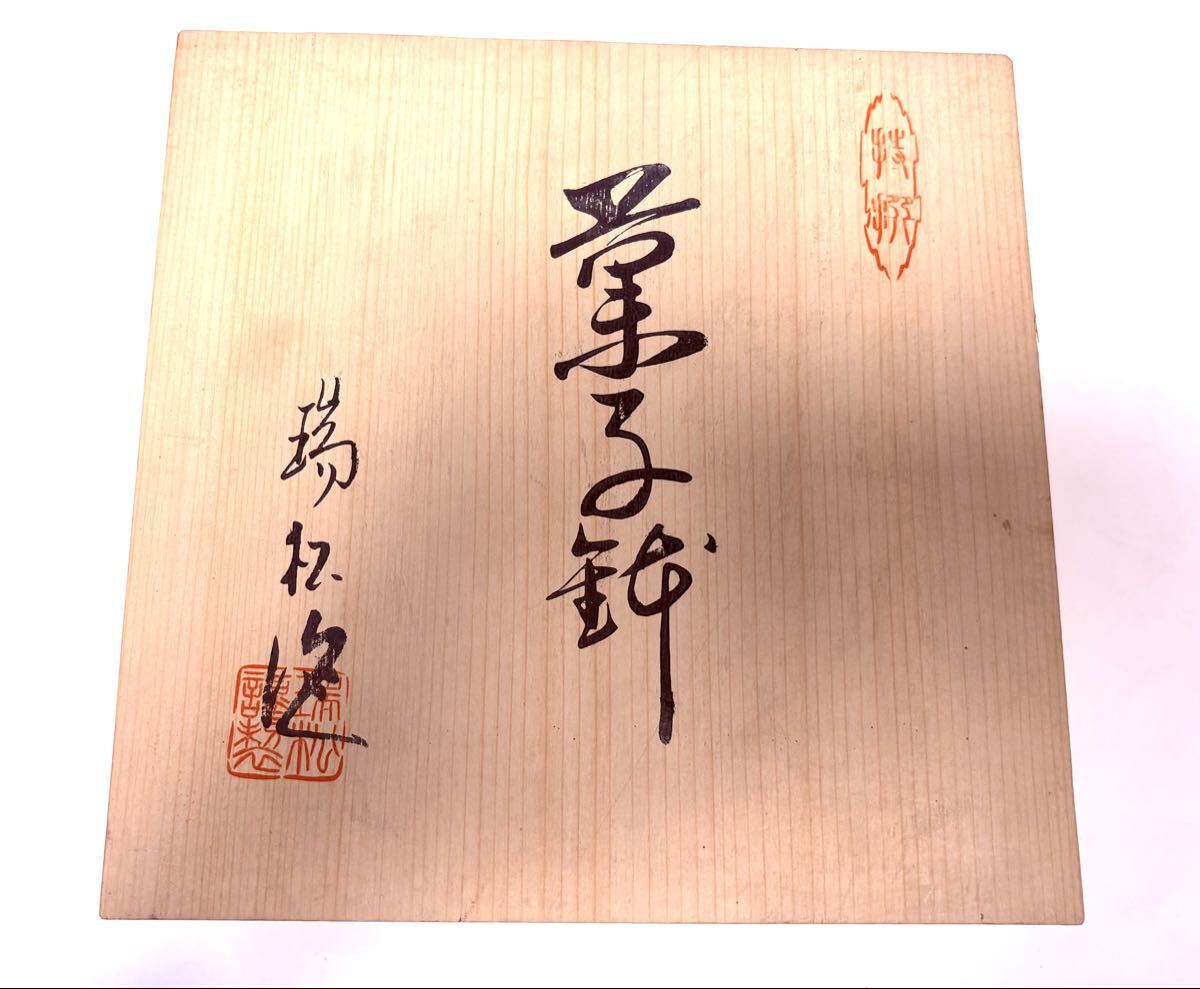 特撰
菓子鉢
瑞松造
瑞松謹製